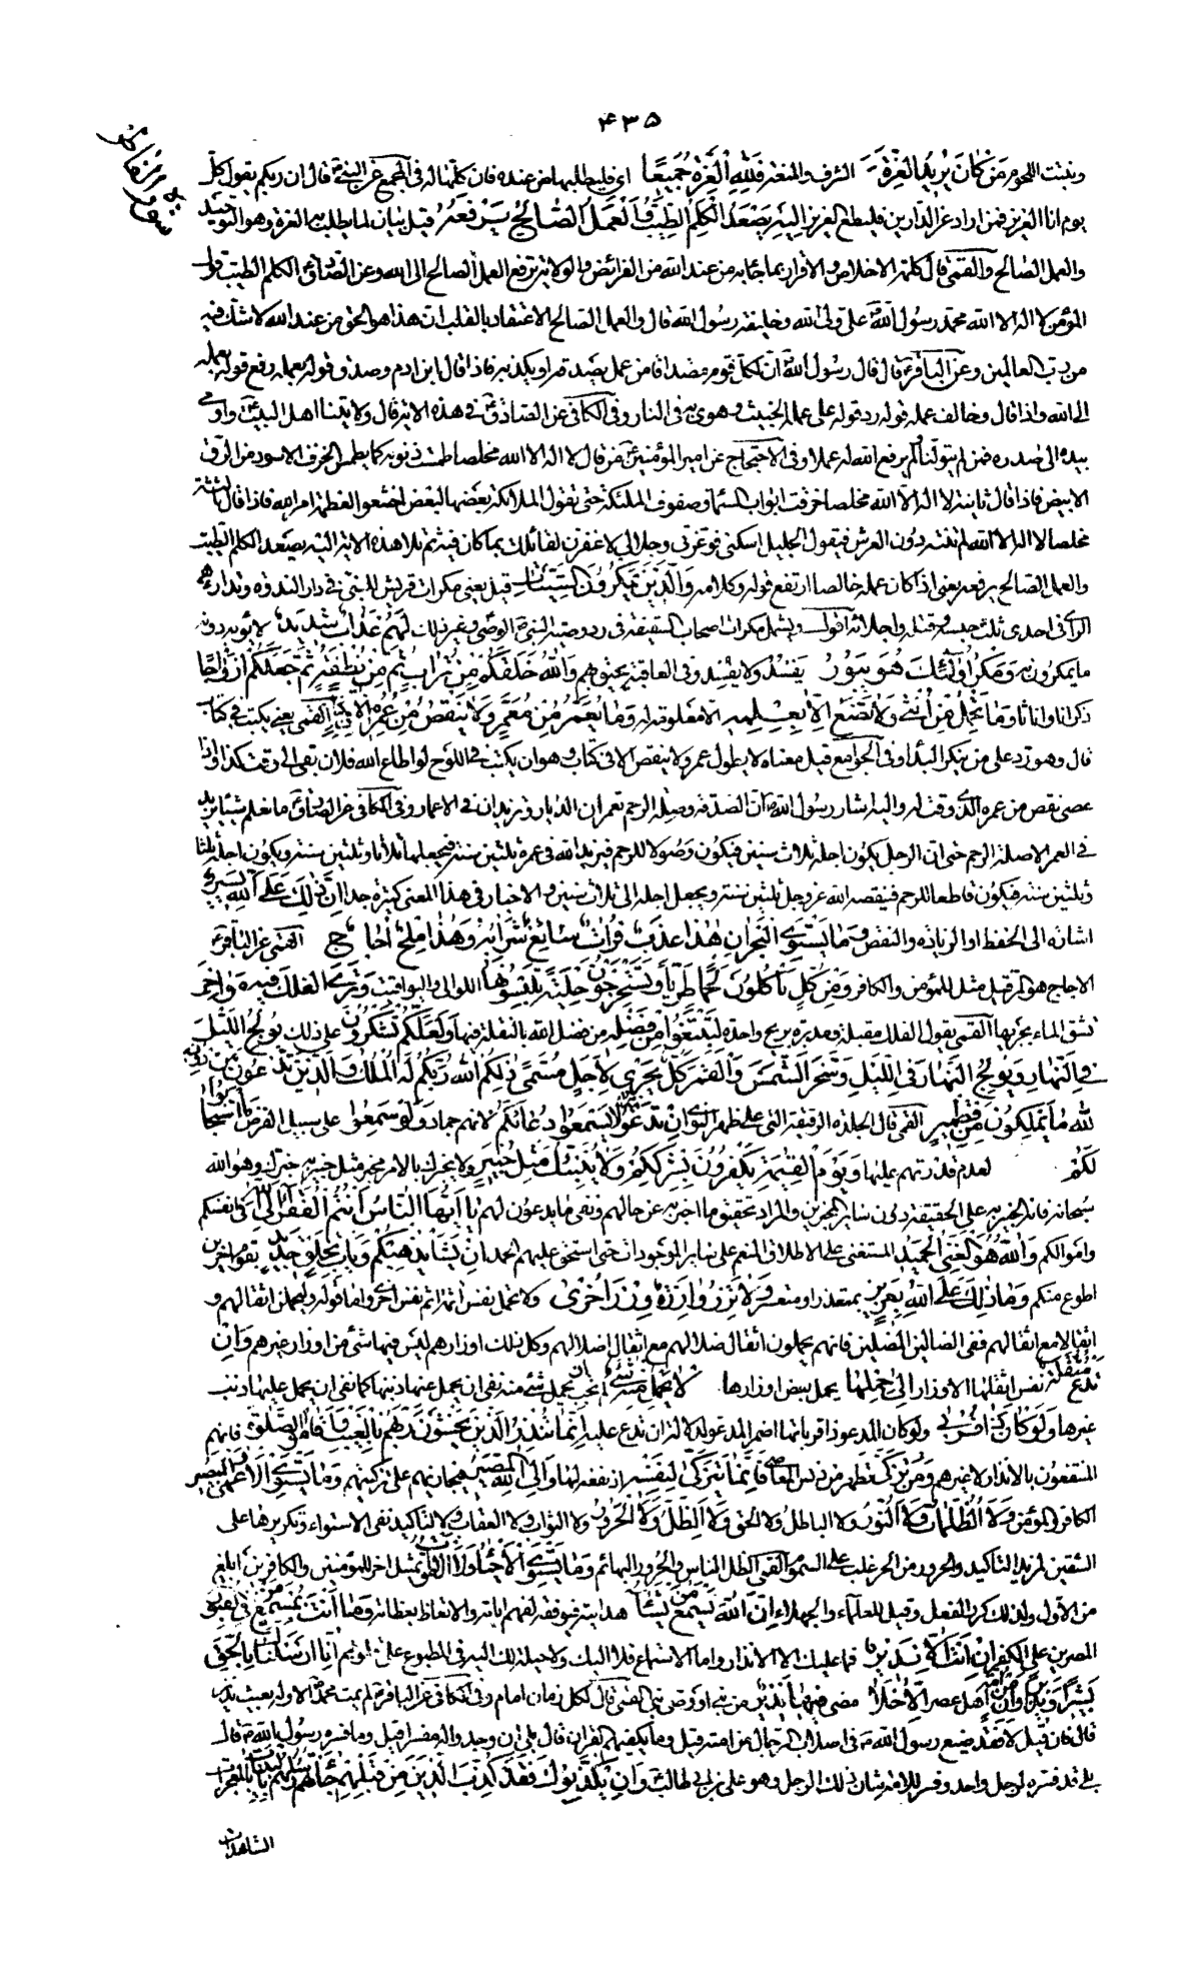 ۴۳۵
سورة الفاطر
وتنبت اللحوم مَن كٰانَ يُريدُ العِزَّةَ الشرف والمنعة فَلِلّٰهِ الْعِزَّةُ جَمِيعًا اى فليطلبها من عنده فان كلها له فى المجمع عن النبى قال ان ربكم يقول كل
يوم انا العزيز فمن اراد عز الدارين فليطع العزيز اِلَيْهِ يَصْعَدُ الْكَلِمُ الطَّيِّبُ وَالْعَمَلُ الصّٰالِحُ يَرْفَعُهُ قيل بيان لما يطلب به العزة وهو التوحيد
والعمل الصالح والقمى قال كلمة الاخلاص والاقرار بما جاء به من عند الله من الفرائض والولاية ترفع العمل الصالح الى الله وعن الصادق الكلم الطيب قول
المؤمن لا اله الا الله محمد رسول الله على ولى الله وخليفة رسول الله قال والعمل الصالح الاعتقاد بالقلب ان هذا هو الحق من عند الله لا شك فيه
من رب العالمين وعن الباقر قال قال رسول الله ان لكل قوم مصداقا من عمل يصدقه او يكذبه فاذا قال ابن ادم وصدق قوله بعمله رفع قوله بعمله
الى الله واذا قال وخالف عمله قوله رد قوله على عمله الخبيث وهوى به فى النار وفى الكافى عن الصادق فى هذه الاية قال ولايتنا اهل البيت واومى
بيده الى صدره فمن لم يتولنا لم يرفع الله له عملا وفى الاحتجاج عن امير المؤمنين من قال لا اله الا الله مخلصا طمست ذنوبه كما يطمس الحرف الاسود من الرق
الابيض فاذا قال ثانية لا اله الا الله مخلصا خرقت ابواب السماء وصفوف الملئكة حتى تقول الملائكة بعضها لبعض اخشعوا لعظمة امر الله فاذا قال ثالثة
مخلصا لا اله الا الله لم تنته دون العرش فيقول الجليل اسكنى فوعزتى وجلالى لاغفرن لقائلك بما كان فيه ثم تلا هذه الاية اليه يصعد الكلم الطيب
والعمل الصالح يرفعه يعنى اذا كان عمله خالصا ارتفع قوله وكلامه وَالَّذِينَ يَمْكُرُونَ السَّيِّئٰاتِ قيل يعنى مكرات قريش للنبى فى دار الندوة وتدارءهم
الرأى فى احدى ثلث حبسه وقتله واجلائه اقول ويشمل مكرات اصحاب السقيفة فى رد وصية النبى الوصى وغير ذلك لَهُمْ عَذٰابٌ شَدِيدٌ لا يؤبه دونه
ما يمكرون به وَمَكْرُ اُولٰئِكَ هُوَ يَبُورُ يفسد ولا يفسد وفى العاقبة يحيق بهم وَاللّٰهُ خَلَقَكُمْ مِنْ تُرٰابٍ ثُمَّ مِنْ نُطْفَةٍ ثُمَّ جَعَلَكُمْ اَزْوٰاجًا
ذكرانا واناثا وَمٰا تَحْمِلُ مِنْ اُنْثٰى وَلٰا تَضَعُ اِلّٰا بِعِلْمِهِ الا معلومة له وَمٰا يُعَمَّرُ مِنْ مُعَمَّرٍ وَلٰا يُنْقَصُ مِنْ عُمُرِهِ اِلّٰا فِى كِتٰابٍ القمى يعنى يكتب فى كتاب
قال وهو رد على من ينكر البداء وفى الجوامع قيل معناه لا يطول عمر ولا ينقص الا فى كتاب وهو ان يكتب فى اللوح لو اطاع الله فلان بقى الى وقت كذا واذا
عصى نقص من عمره الذى وقت له واليه اشار رسول الله ان الصدقة وصلة الرحم تعمران الديار وتزيدان فى الاعمار وفى الكافى عن الصادق ما نعلم شيئا يزيد
فى العمر الا صلة الرحم حتى ان الرجل يكون اجله ثلاث سنين فيكون وصولا للرحم فيزيد الله فى عمره ثلثين سنة فيجعلها ثلاثا وثلثين سنة ويكون اجله ثلثا
وثلثين سنة فيكون قاطعا للرحم فينقصه الله عز وجل ثلثين سنة ويجعل اجله الى ثلاث سنين والاخبار فى هذا المعنى كثيرة جدا اِنَّ ذٰلِكَ عَلَى اللّٰهِ يَسِيرٌ
اشارة الى الحفظ او الزيادة والنقص وَمٰا يَسْتَوِى الْبَحْرٰانِ هٰذٰا عَذْبٌ فُرٰاتٌ سٰائِغٌ شَرٰابُهُ وَهٰذٰا مِلْحٌ اُجٰاجٌ القمى عن الباقر
الاجاج هو المر قيل مثل للمؤمن والكافر وَمِنْ كُلٍّ تَأْكُلُونَ لَحْمًا طَرِيًّا وَتَسْتَخْرِجُونَ حِلْيَةً تَلْبَسُونَهٰا اللوالى واليواقيت وَتَرَى الْفُلْكَ فِيهِ مَوٰاخِرَ
تشق الماء بجريها القمى يقول الفلك مقبلة ومدبرة بريح واحدة لِتَبْتَغُوا مِنْ فَضْلِهِ من فضل الله بالنقلة فيها وَلَعَلَّكُمْ تَشْكُرُونَ على ذلك يُولِجُ اللَّيْلَ
فِى النَّهٰارِ وَيُولِجُ النَّهٰارَ فِى اللَّيْلِ وَسَخَّرَ الشَّمْسَ وَالْقَمَرَ كُلٌّ يَجْرِى لِاَجَلٍ مُسَمًّى ذٰلِكُمُ اللّٰهُ رَبُّكُمْ لَهُ الْمُلْكُ وَالَّذِينَ تَدْعُونَ مِنْ دُونِهِ
لله مٰا يَمْلِكُونَ مِنْ قِطْمِيرٍ القمى قال الجلدة الرقيقة التى على ظهر النوى اِنْ تَدْعُوهُمْ لٰا يَسْمَعُوا دُعٰائَكُمْ لانهم جماد وَلَوْ سَمِعُوا على سبيل الفرض مَا اسْتَجٰابُوا
لَكُمْ لعدم قدرتهم عليها وَيَوْمَ الْقِيٰمَةِ يَكْفُرُونَ بِشِرْكِكُمْ وَلٰا يُنَبِّئُكَ مِثْلُ خَبِيرٍ ولا يخبرك بالامر مخبر مثل خبير به خبرك وهو الله
سبحانه فانه الخبير به على الحقيقة دون سائر المخبرين والمراد تحقيق ما اخبر به عن حالهم ونفى ما يدعون لهم يٰا اَيُّهَا النّٰاسُ اَنْتُمُ الْفُقَرٰاءُ اِلَى اللّٰهِ فى انفسكم
واموالكم وَاللّٰهُ هُوَ الْغَنِىُّ الْحَمِيدُ المستغنى على الاطلاق المنعم على سائر الموجودات حتى استحق عليهم الحمد اِنْ يَشَأْ يُذْهِبْكُمْ وَيَأْتِ بِخَلْقٍ جَدِيدٍ بقوم اخرين
اطوع منكم وَمٰا ذٰلِكَ عَلَى اللّٰهِ بِعَزِيزٍ بمتعذر او متعسر وَلٰا تَزِرُ وٰازِرَةٌ وِزْرَ اُخْرٰى ولا تحمل نفس اثمة اثم نفس اخرى واما قوله وليحملن اثقالهم و
اثقالا مع اثقالهم ففى الضالين المضلين فانهم يحملون اثقال ضلالهم مع اثقال اضلالهم وكل ذلك اوزارهم ليس فيها شئ من اوزار غيرهم وَاِنْ
تَدْعُ مُثْقَلَةٌ نفس اثقلها الاوزار اِلٰى حِمْلِهٰا يحمل بعض اوزارها لٰا يُحْمَلْ مِنْهُ شَىْءٌ لم تجب يحمل شئ منه نفى ان يحمل عنها ذنبها كما نفى ان يحمل عليها ذنب
غيرها وَلَوْ كٰانَ ذٰا قُرْبٰى ولو كان المدعو ذا قرباتها اضمر المدعو لدلالة ان تدع عليه اِنَّمٰا تُنْذِرُ الَّذِينَ يَخْشَوْنَ رَبَّهُمْ بِالْغَيْبِ وَاَقٰامُوا الصَّلٰوةَ فانهم
المنتفعون بالانذار لا غيرهم وَمَنْ تَزَكّٰى تطهر من دنس المعاصى فَاِنَّمٰا يَتَزَكّٰى لِنَفْسِهِ اذ نفعه لها وَاِلَى اللّٰهِ الْمَصِيرُ فيجازيهم على تزكيتهم وَمٰا يَسْتَوِى الْاَعْمٰى وَالْبَصِيرُ
الكافر والمؤمن وَلَا الظُّلُمٰاتُ وَلَا النُّورُ ولا الباطل ولا الحق وَلَا الظِّلُّ وَلَا الْحَرُورُ ولا الثواب ولا العقاب ولا لتاكيد نفى الاستواء وتكريرها على
الشقين لمزيد التاكيد والحرور من الحر غلب على السموم القمى الظل الناس والحرور البهائم وَمٰا يَسْتَوِى الْاَحْيٰاءُ وَلَا الْاَمْوٰاتُ تمثيل اخر للمؤمنين والكافرين ابلغ
من الاول ولذلك كرر الفعل وقيل للعلماء والجهلاء اِنَّ اللّٰهَ يُسْمِعُ مَنْ يَشٰاءُ هدايته فيوفقه لفهم اياته والاتعاظ بعظاته وَمٰا اَنْتَ بِمُسْمِعٍ مَنْ فِى الْقُبُورِ
المصرين على الكفر اِنْ اَنْتَ اِلّٰا نَذِيرٌ فما عليك الا الانذار واما الاسماع فلا اليك ولا حيلة لك اليه فى المطبوع على قلوبهم اِنّٰا اَرْسَلْنٰاكَ بِالْحَقِّ
بَشِيرًا وَنَذِيرًا وَاِنْ مِنْ اُمَّةٍ اهل عصر اِلّٰا خَلٰا مضى فِيهٰا نَذِيرٌ من نبى او وصى نبى القمى قال لكل زمان امام وفى الكافى عن الباقر لم يمت محمد الا وله بعيث نذير
قال فان قيل لا فقد ضيع رسول الله من فى اصلاب الرجال من امته قيل وما يكفيهم القران قال بلى ان وجدوا له مفسرا قيل وما فسره رسول الله قال
بلى قد فسره لرجل واحد وفسر للامة شان ذلك الرجل وهو على بن ابى طالب وَاِنْ يُكَذِّبُوكَ فَقَدْ كَذَّبَ الَّذِينَ مِنْ قَبْلِهِمْ جٰاءَتْهُمْ رُسُلُهُمْ بِالْبَيِّنٰاتِ بالمعجزات
الشاهدات